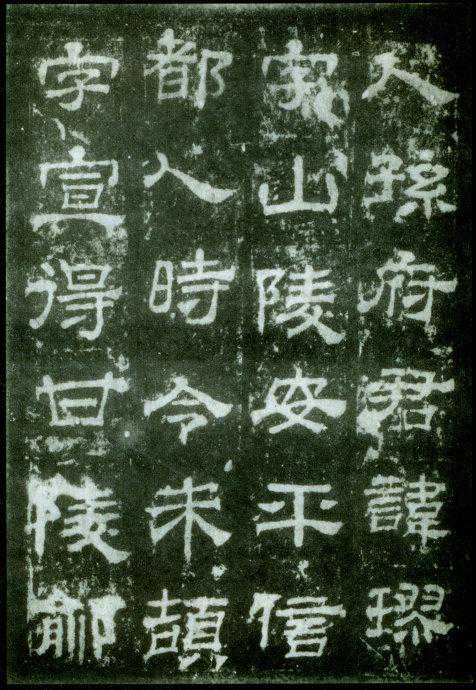 人孫府君諱璆
字山陵安平信
都人時令朱頡
字宣得甘陵鄃